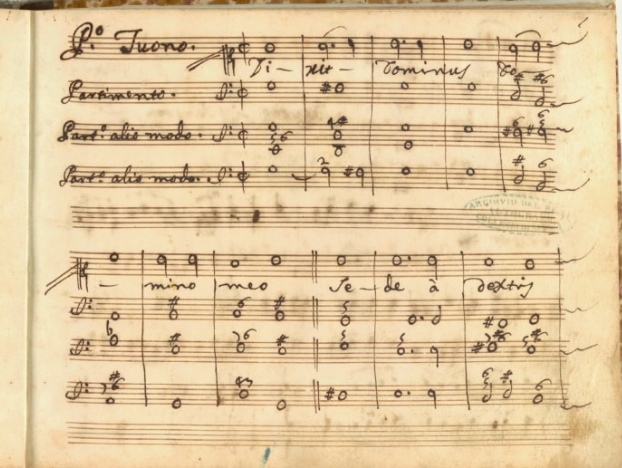 P.º Tuono.
Di - xit - Dominus Do
Partimento.
Part.º alio modo.
Part.º alio modo.
- mino meo Se - de à dextris